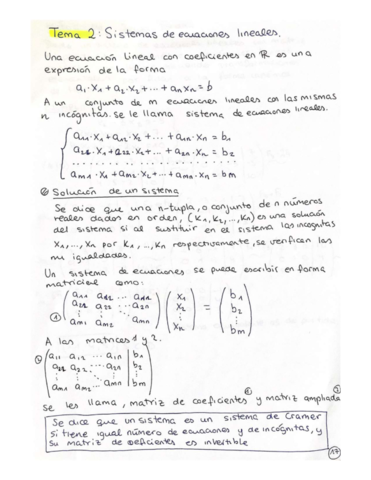 Tema 2: Sistemas de ecuaciones lineales.
Una ecuación Lineal con coeficientes en ℝ es una
expresión de la forma
a₁·x₁+a₂·x₂+···+aₙxₙ=b
A un conjunto de m ecuaciones lineales con las mismas
n incógnitas se le llama sistema de ecuaciones lineales.
a₁₁·x₁+a₁₂·x₂+···+a₁ₙ·xₙ=b₁
a₂₁·x₁+a₂₂·x₂+···+a₂ₙ·xₙ=b₂
··················
aₘ₁·x₁+aₘ₂·x₂+···+aₘₙ·xₙ=bₘ
Solución de un sistema
Se dice que una n-tupla, o conjunto de n números
reales dados en orden, (K₁,K₂,...,Kₙ) es una solución
del sistema si al sustituir en el sistema las incognitas
x₁,...,xₙ por K₁,...,Kₙ respectivamente, se verifican las
m igualdades.
Un sistema de ecuaciones se puede escribir en forma
matricial como:
(a₁₁ a₁₂ ... a₁ₙ) (x₁) (b₁)
(a₂₁ a₂₂ ... a₂ₙ) (x₂) = (b₂)
(⋮) (⋮) (⋮)
① (aₘ₁ aₘ₂ ... aₘₙ) (xₙ) (bₘ)
A las matrices 1 y 2.
② (a₁₁ a₁₂ ··· a₁ₙ | b₁)
(a₂₁ a₂₂ ··· a₂ₙ | b₂)
(⋮ | ⋮)
(aₘ₁ aₘ₂ ... aₘₙ | bₘ)
① ②
se les llama, matriz de coeficientes y matriz ampliada
Se dice que un sistema es un sistema de Cramer
si tiene igual número de ecuaciones y de incógnitas, y
su matriz de coeficientes es invertible
17